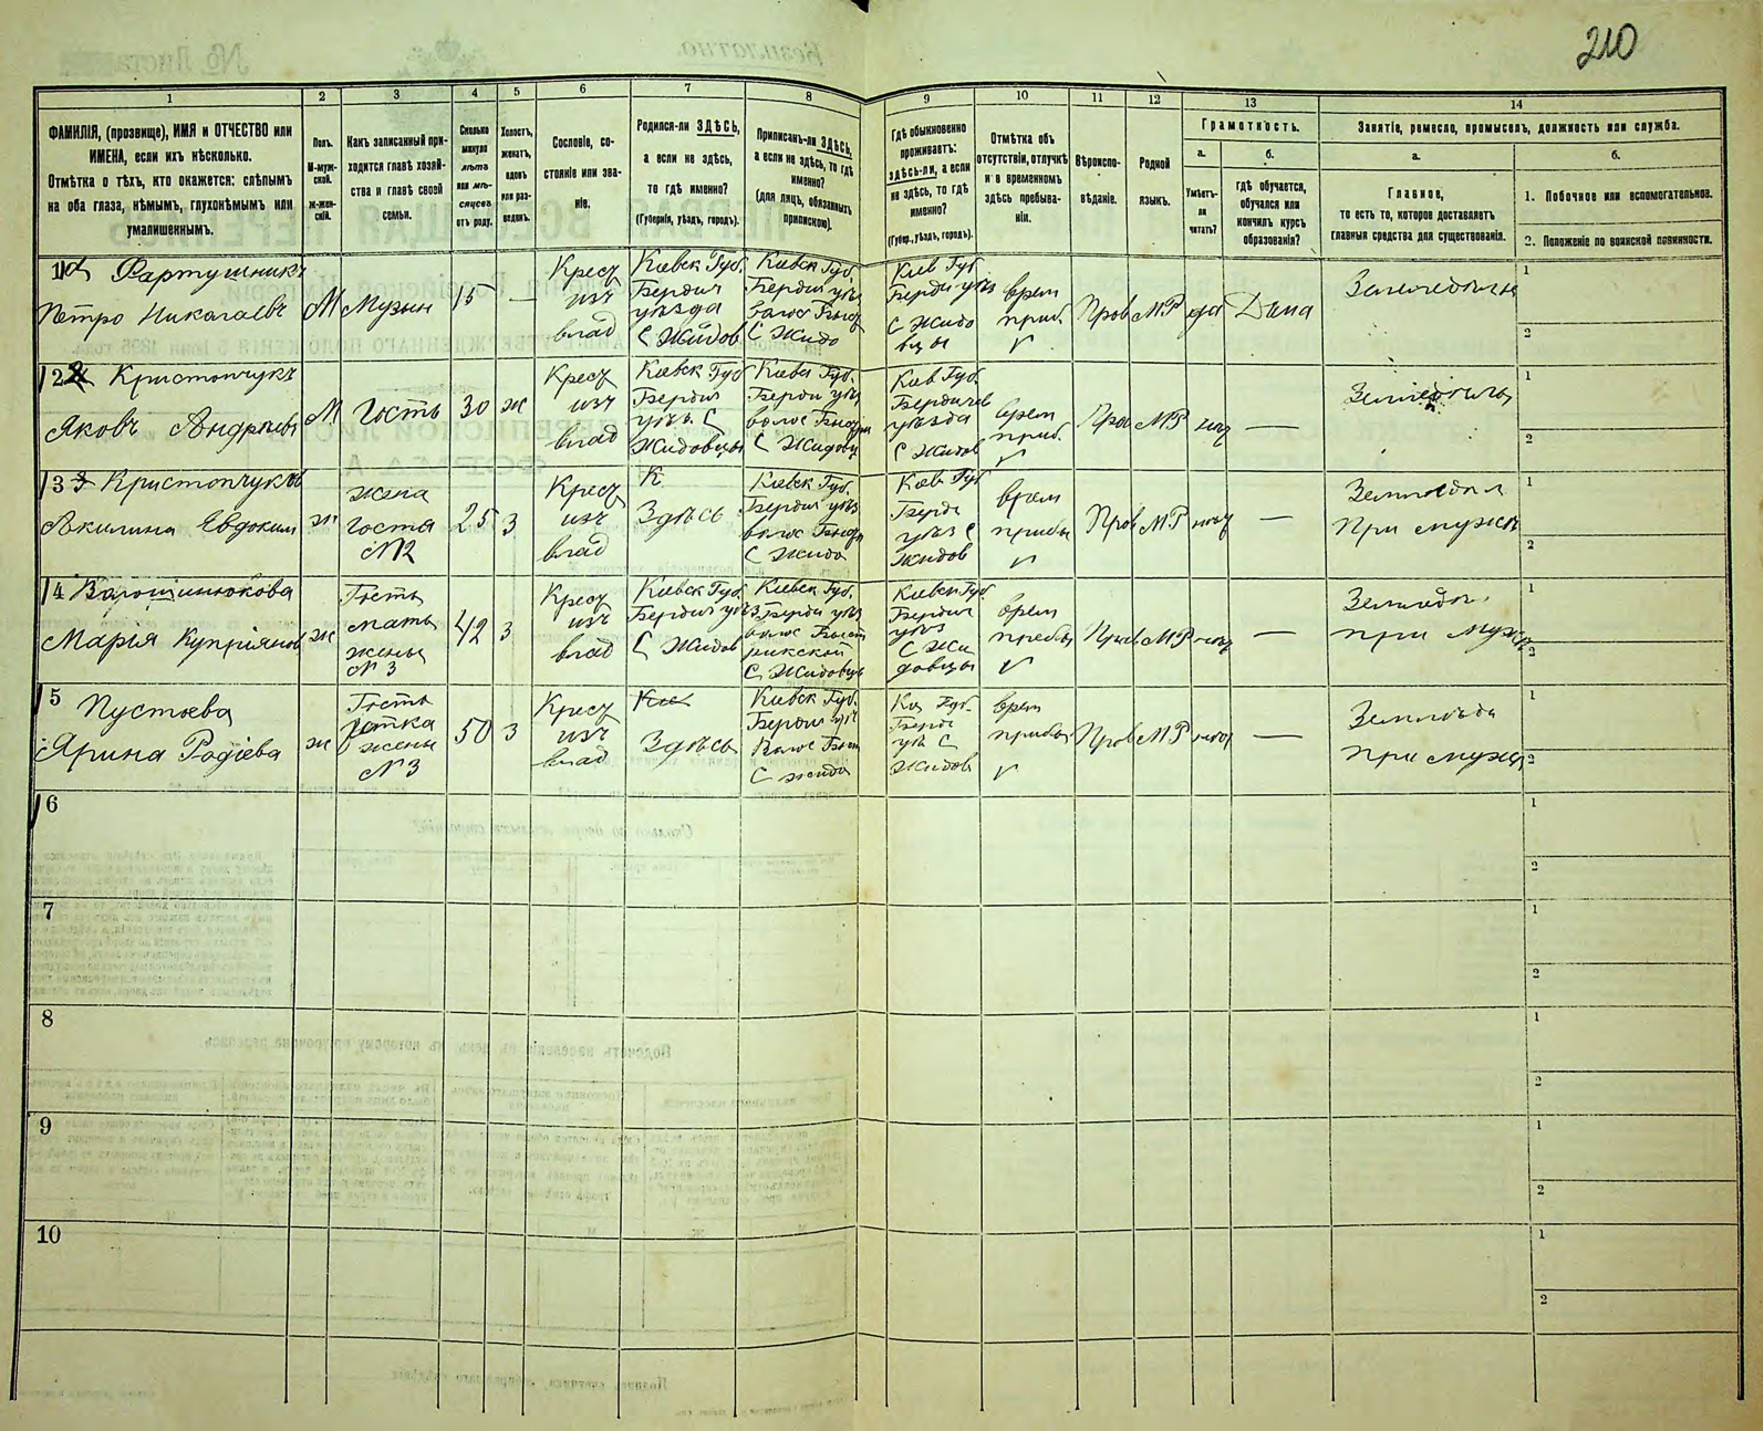 210
1 2 3 4 5 6 7 8 9 10 11 12 13 14
ФАМИЛІЯ, (прозвище), ИМЯ и ОТЧЕСТВО или
ИМЕНА, если ихъ нѣсколько.
Отмѣтка о тѣхъ, кто окажется: слѣпымъ
на оба глаза, нѣмымъ, глухонѣмымъ или
умалишеннымъ.
Полъ.
М-муж-
ской.
Ж-жен-
скій.
Какъ записанный при-
ходится главѣ хозяй-
ства и главѣ своей
семьи.
Сколько
минуло
лѣтъ
или мѣ-
сяцевъ
отъ роду.
Холостъ,
женатъ,
вдовъ
или раз-
веденъ.
Сословіе, со-
стояніе или зва-
ніе.
Родился-ли ЗДѢСЬ,
а если не здѣсь,
то гдѣ именно?
(Губернія, уѣздъ, городъ).
Приписанъ-ли ЗДѢСЬ,
а если не здѣсь, то гдѣ
именно?
(для лицъ, обязанныхъ
припискою).
Гдѣ обыкновенно
проживаетъ:
здѣсь-ли, а если
не здѣсь, то гдѣ
именно?
(Губер., уѣздъ, городъ).
Отмѣтка объ
отсутствіи, отлучкѣ
и о временномъ
здѣсь пребыва-
ніи.
Вѣроиспо-
вѣданіе.
Родной
языкъ.
Грамотность.
а.
Умѣетъ-
ли
читать?
б.
гдѣ обучается,
обучался или
кончилъ курсъ
образованія?
Занятіе, ремесло, промыселъ, должность или служба.
а.
Главное,
то есть то, которое доставляетъ
главныя средства для существованія.
б.
1. Побочное или вспомогательное.
2. Положеніе по воинской повинности.
1 Фартушникъ
Петро Николаевъ
М
15
—
Крест
изъ
влад
Киевск Губ.
Бердич
уѣзда
С Жидов
Киевск Губ
Бердич уѣз
С Жидо
Киев Губ
Берди уѣз
С Жидо
вцы
врем
приб.
Прав
МР
да
Дома
1
2
2 Кристопчукъ
Яковъ Андреевъ
М
Гость
30
ж
Крест
изъ
влад
Киевск Губ
Бердич
уѣз. С
Жидовцы
Киевск Губ.
Берди уѣз
С Жидовц
Киев Губ.
Бердичев
уѣзда
С Жидов
врем
приб.
Прав
МР
—
1
2
3 Кристопчукова
Акилина Евдоким
ж
жена
гостя
№2
25
З
Крест
изъ
влад
К
Здѣсь
Киевск Губ.
Бердич уѣз
С Жидо
Киев Губ
Берди
уѣз С
Жидов
врем
прибы
Прав
МР
—
При мужѣ
1
2
4
Марія Купріянов
ж
Гость
мать
жены
№ 3
42
З
Крест
изъ
влад
Киевск Губ.
Бердич уѣз
С Жидов
Киевск Губ.
Берди уѣз
С Жидовцы
Киевск Губ.
Бердич
уѣз
С Жи
довцы
врем
Прав
МР
—
при мужѣ
1
2
5 Пустоева
Ярина Родіева
ж
Гость
тетка
жены
№ 3
50
З
Крест
изъ
влад
Здѣсь
Киевск Губ.
Бердич уѣз
С жидо
Губ.
Берди
уѣз С
Жидов
врем
прибы
Прав
МР
—
при мужѣ
1
2
6
1
2
7
1
2
8
1
2
9
1
2
10
1
2